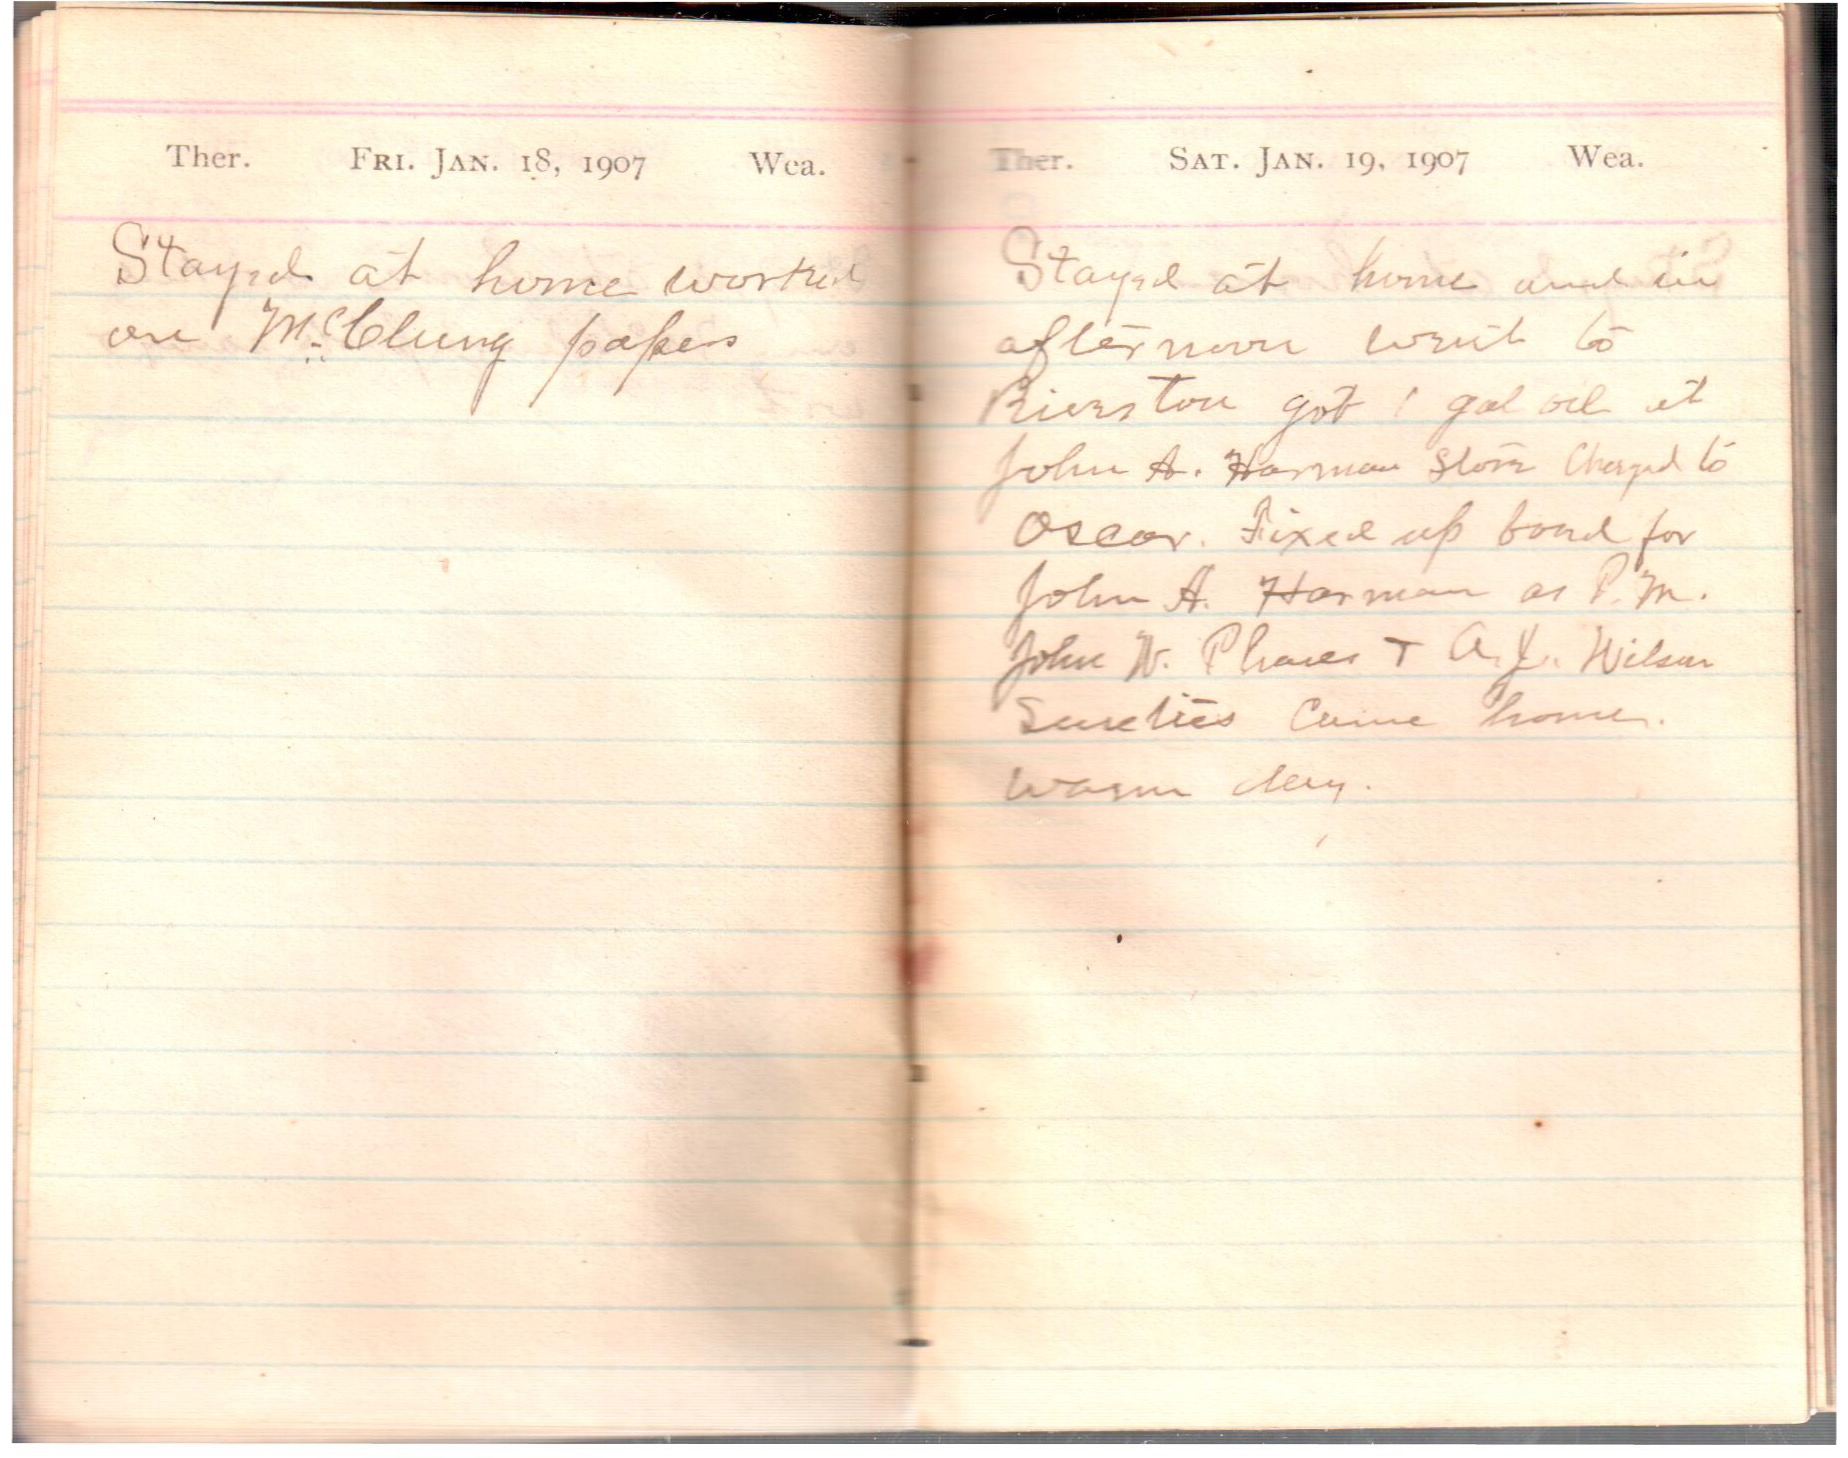 Ther. Fri. Jan. 18, 1907 Wea.
Stayed at home worked
on McClung papers
Ther. Sat. Jan. 19, 1907 Wea.
Stayed at home and in
afternoon went to
Riverton got 1 gal oil at
John A. Harman Store Charged to
Oscar. Fixed up bond for
John A. Harman as P.M.
John W. Phares + A. J. Wilson
Sureties Came home.
Warm day.